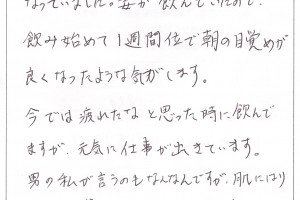 なっていました。妻が飲んでいたので、
飲み始めて1週間位で朝の目覚めが
良くなったような気がします。
今では疲れたなと思った時に飲んで
ますが、元気に仕事が出きています。
男の私が言うのもなんなんですが、肌にはり